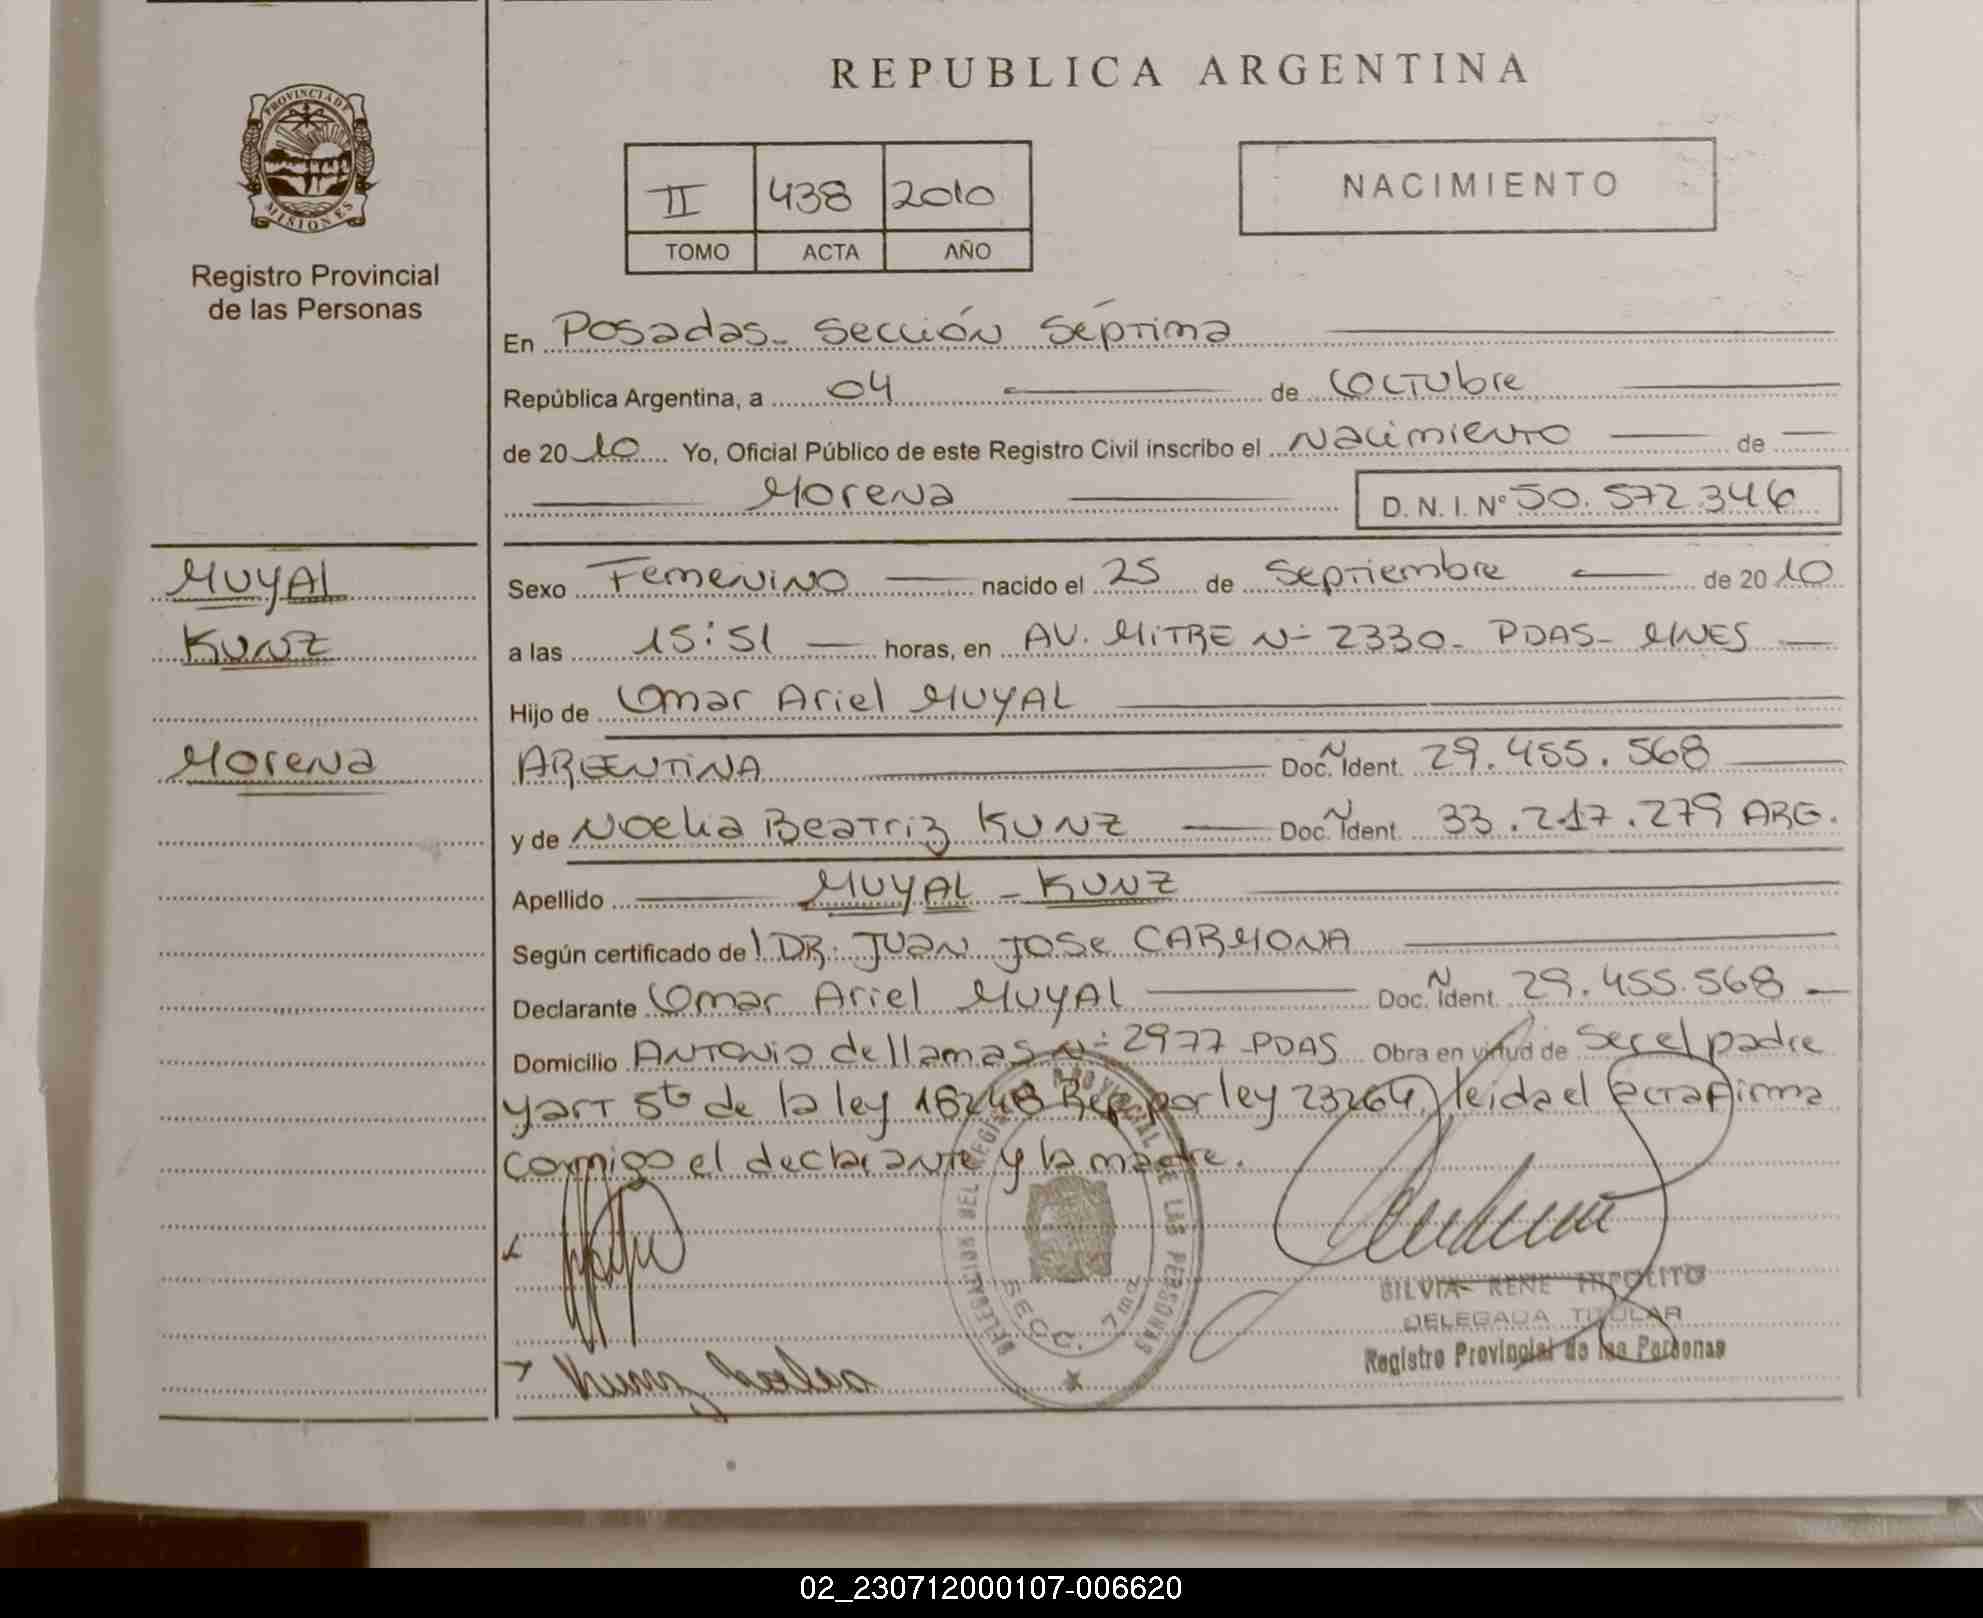 REPUBLICA ARGENTINA
PROVINCIA DE
MISIONES
Registro Provincial
de las Personas
II 438 2010
TOMO ACTA AÑO
NACIMIENTO
En Posadas - Sección Séptima
República Argentina, a 04 de Octubre
de 2010 Yo, Oficial Público de este Registro Civil inscribo el Nacimiento de
Morena D. N. I. Nº 50.572.346
MUYAL
KUNZ
Morena
Sexo Femenino nacido el 25 de Septiembre de 2010
a las 15:51 horas, en AV. MITRE Nº 2330 - PDAS - MNES
Hijo de Omar Ariel MUYAL
ARGENTINA Doc. Ñ Ident. 29.455.568
y de Noelia Beatriz KUNZ Doc. Ñ Ident. 33.217.279 ARG.
Apellido MUYAL - KUNZ
Según certificado de DR. JUAN JOSE CARMONA
Declarante Omar Ariel MUYAL Doc. Ñ Ident. 29.455.568
Domicilio ANTONIO de llamas Nº 2977 - PDAS Obra en virtud de ser el padre
y art 5to de la ley 18248 Rep por ley 23264, leida el acta firma
conmigo el declarante y la madre.
DELEGACION DEL REGISTRO PROVINCIAL DE LAS PERSONAS
SECC. 7ma
Kunz Noelia
SILVIA RENE HIPOLITO
DELEGADA TITULAR
Registro Provincial de las Personas
02_230712000107-006620